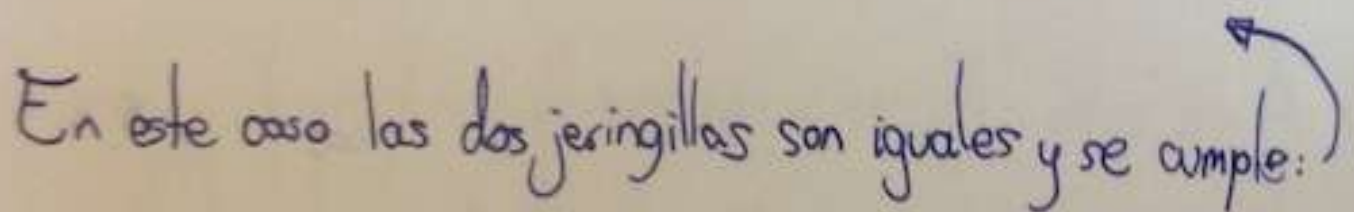 En este caso las dos jeringillas son iguales y se cumple: